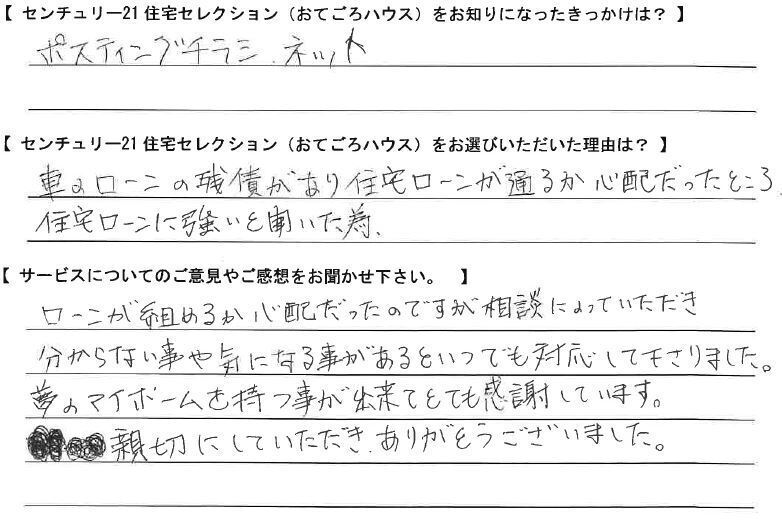 【 センチュリー21 住宅セレクション（おてごろハウス）をお知りになったきっかけは？ 】
ポスティングチラシ、ネット
【 センチュリー21 住宅セレクション（おてごろハウス）をお選びいただいた理由は？ 】
車のローンの残債があり住宅ローンが通るか心配だったところ、
住宅ローンに強いと聞いた為、
【 サービスについてのご意見やご感想をお聞かせ下さい。 】
ローンが組めるか心配だったのですが相談によっていただき
分からない事や気になる事があるといつでも対応して下さりました。
夢のマイホームを持つ事が出来てとても感謝しています。
親切にしていただき、ありがとうございました。